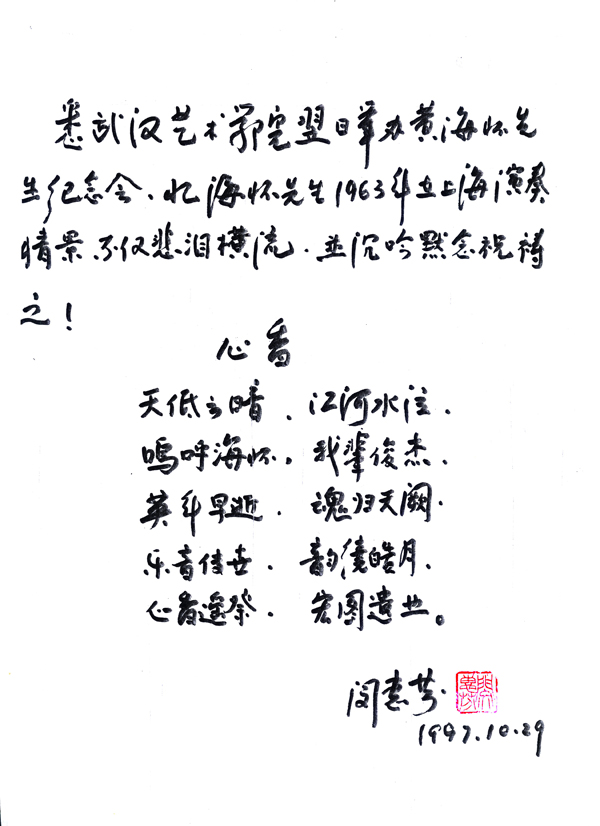 悉武汉艺术翌日举办黄海怀先
生纪念会、忆海怀先生1963年在上海演奏
情景不仅悲泪横流.並沉吟默念祝祷
之！
心香
天低云暗、江河水泣.
嗚呼海怀。我輩俊杰.
英年早逝.魂归天阙.
乐音传世.韵绕皓月.
心香遥祭.宏图遗业。
闵惠芬.
1997.10.29